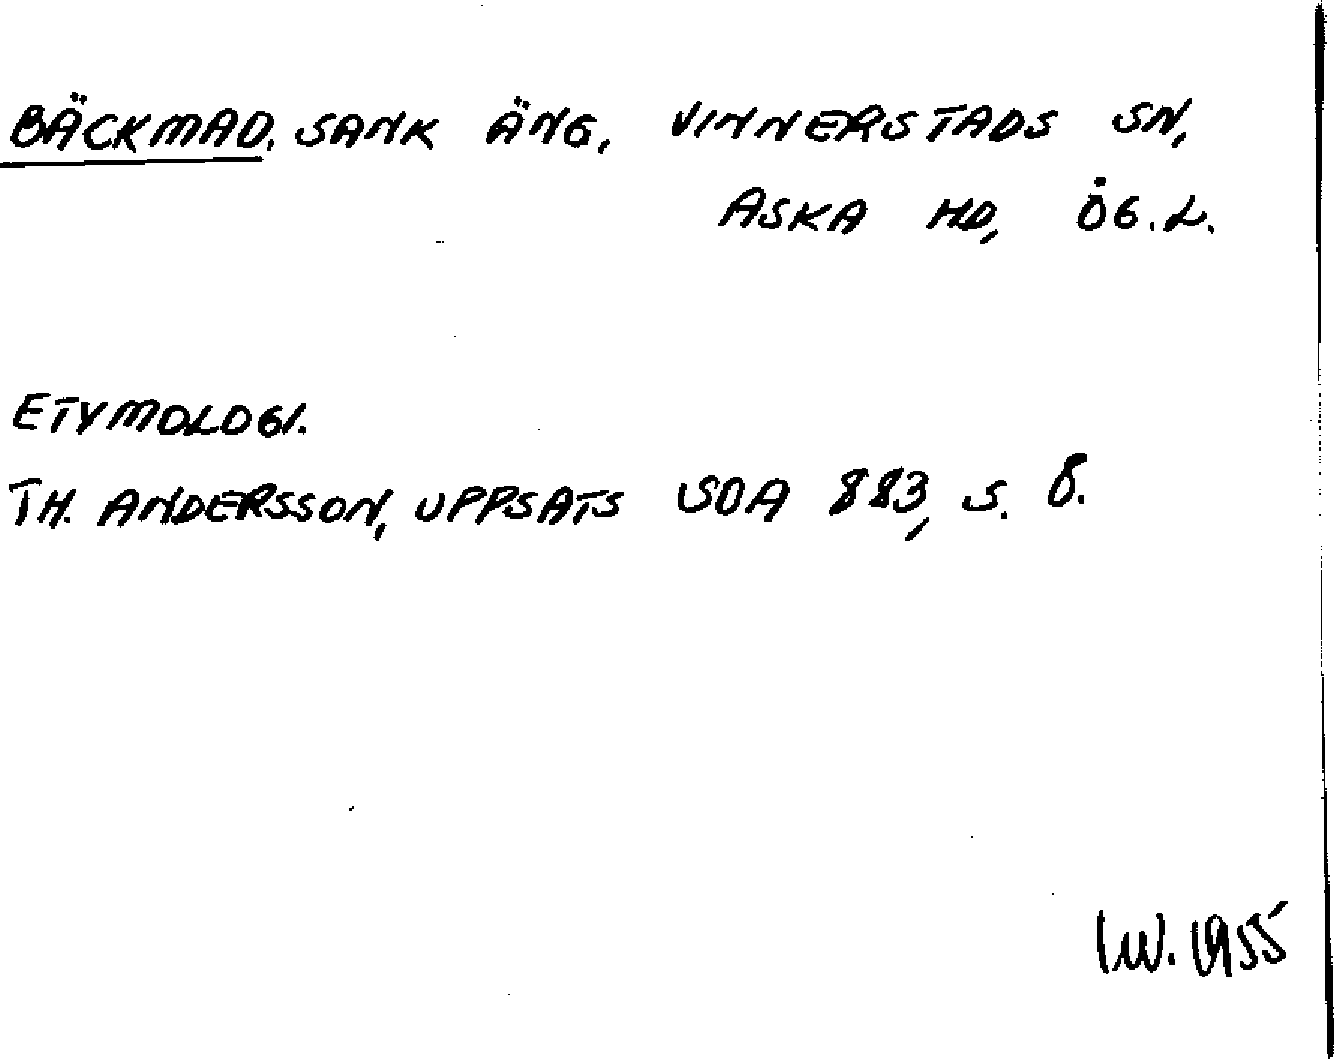 BÄCKMAD. SANK ÄNG, VINNERSTADS SN,
ASKA HD, ÖG.L.
ETYMOLOGI.
TH. ANDERSSON, UPPSATS SOA 883, S. 8.
IW. 1955